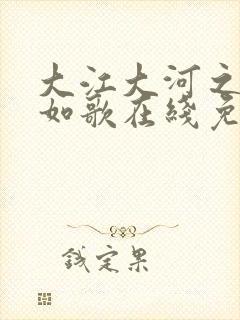 大江大河之
如歌在线免
钱定果